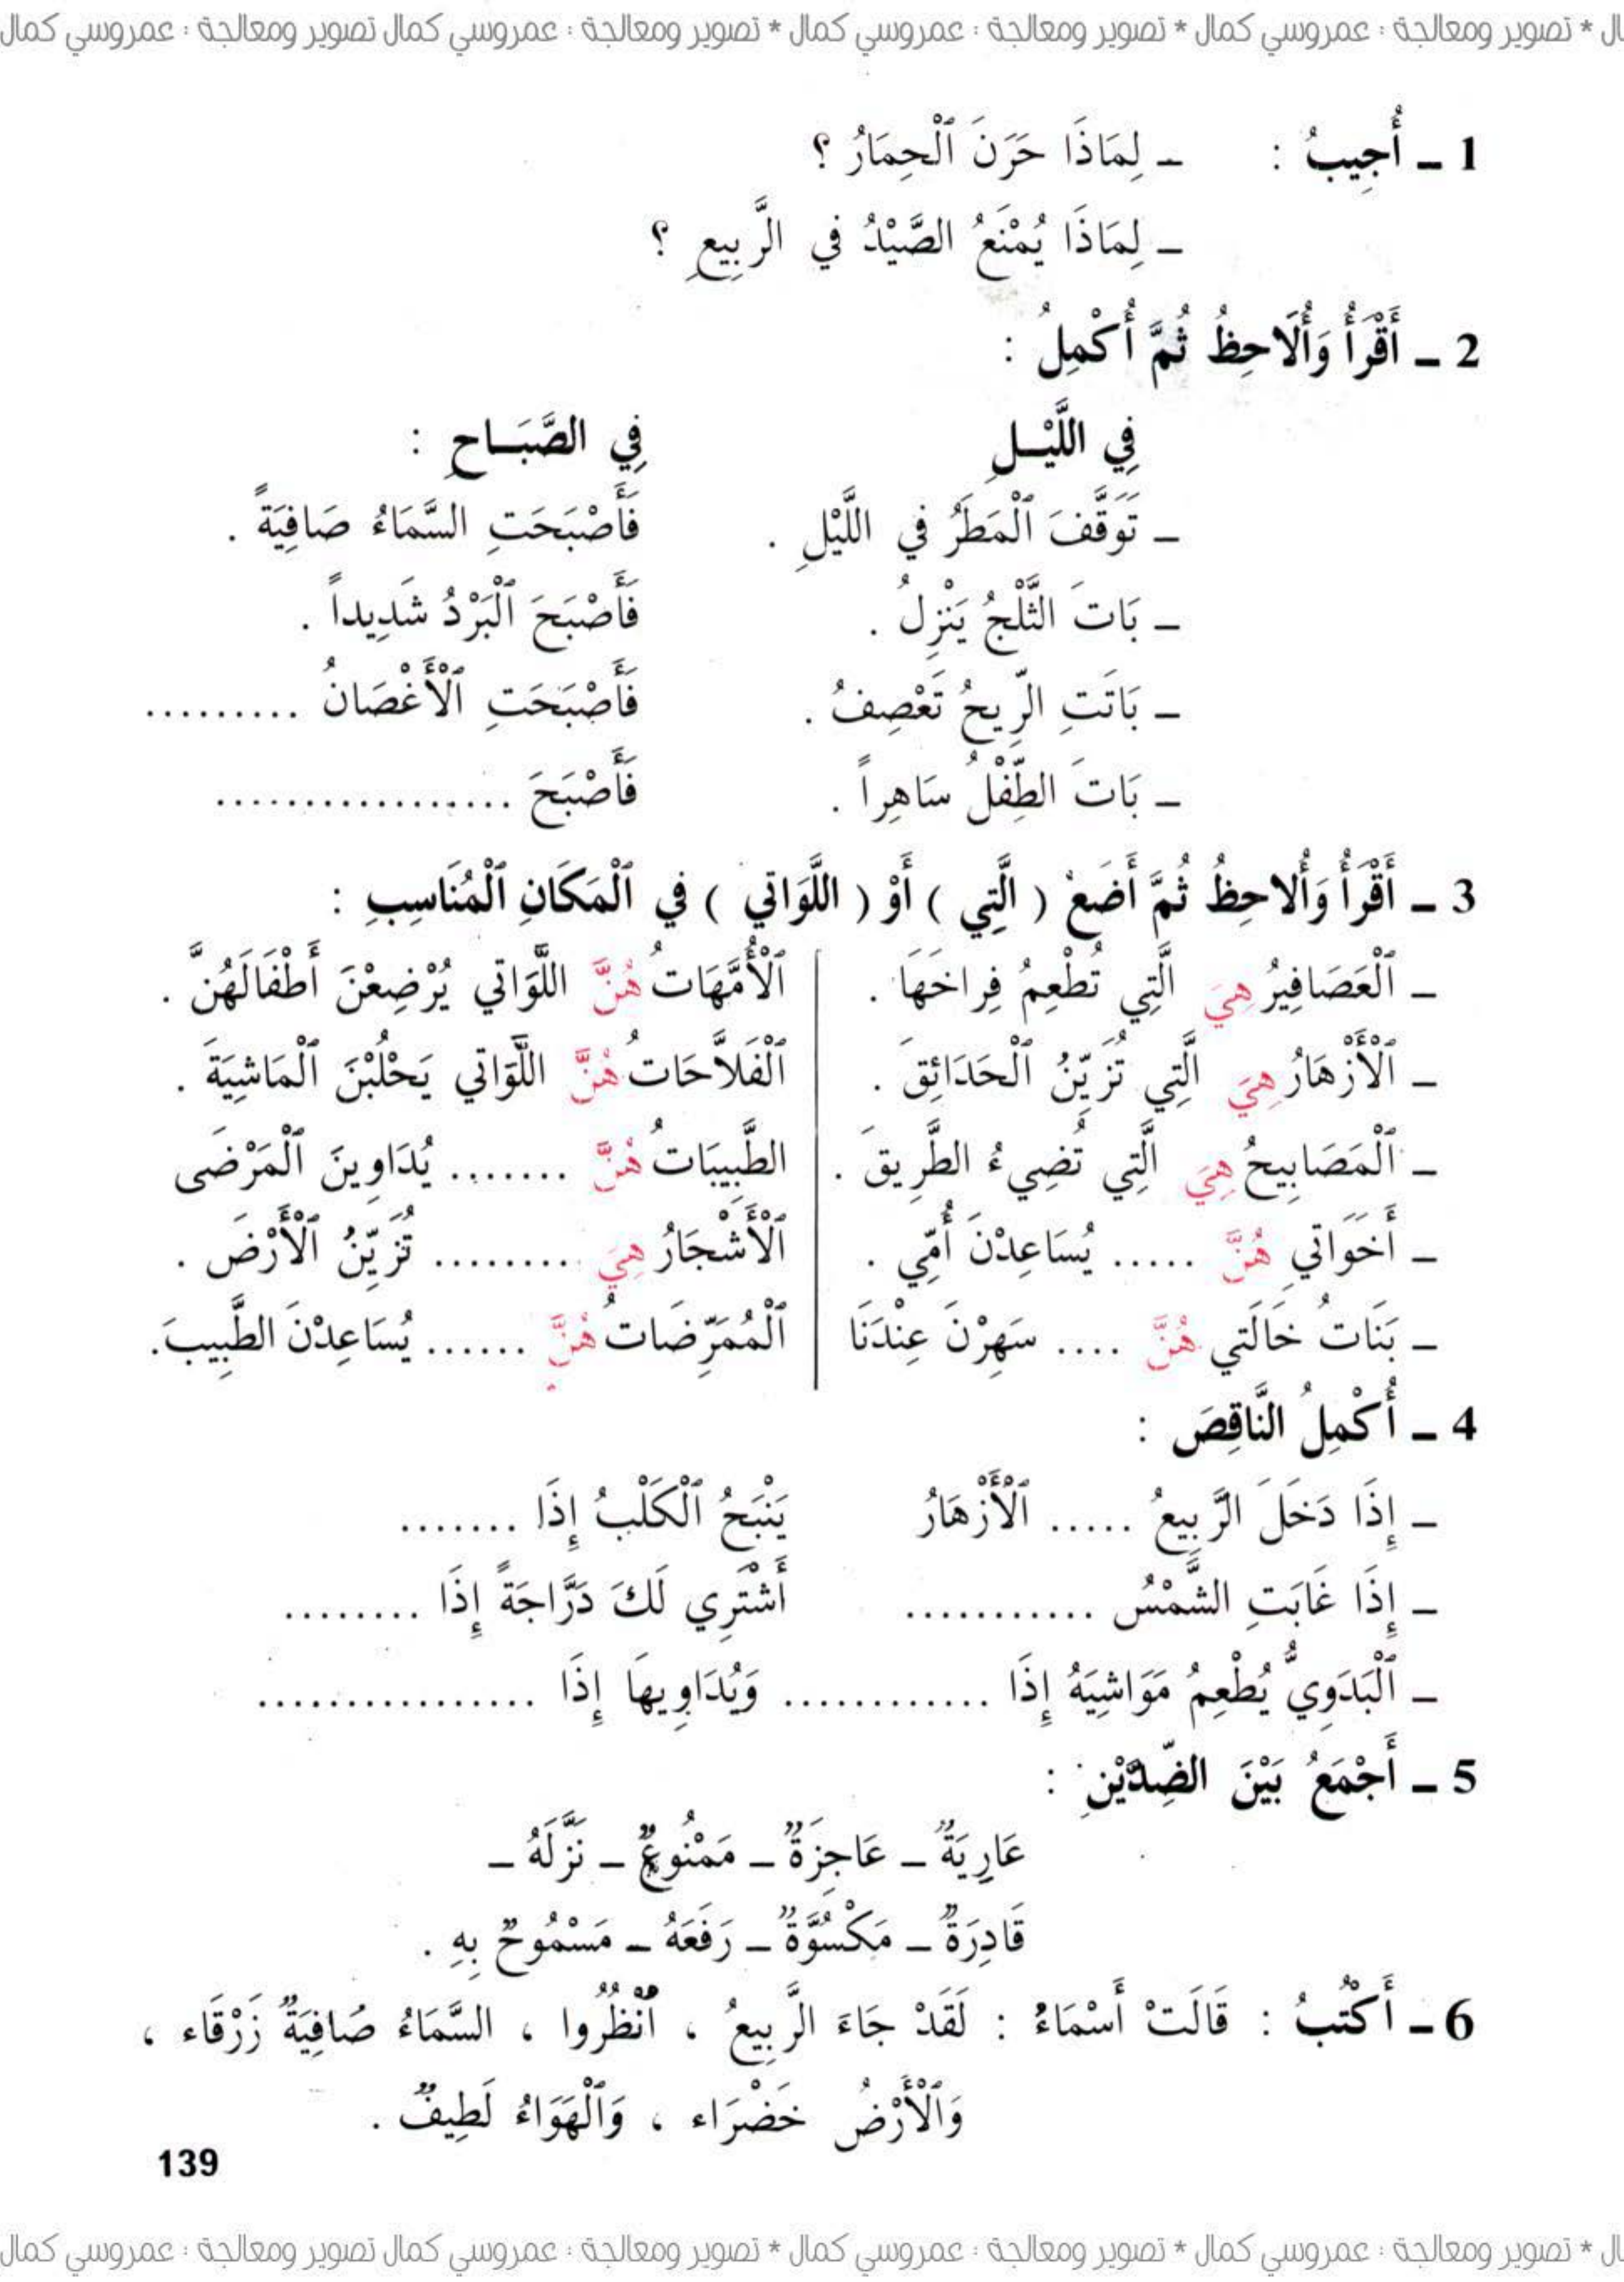 ال * تصوير ومعالجة : عمروسي كمال * تصوير ومعالجة : عمروسي كمال * تصوير ومعالجة : عمروسي كمال تصوير ومعالجة : عمروسي كمال
1 ـ أُجِيبُ : ـ لِمَاذَا حَرَنَ ٱلْحِمَارُ ؟
ـ لِمَاذَا يُمْنَعُ الصَّيْدُ في الرَّبِيعِ ؟
2 ـ أَقْرَأُ وَأُلَاحِظُ ثُمَّ أُكْمِلُ :
فِي اللَّيْـلِ فِي الصَّبَـاحِ :
ـ تَوَقَّفَ ٱلْمَطَرُ في اللَّيْلِ . فَأَصْبَحَتِ السَّمَاءُ صَافِيَةً .
ـ بَاتَ الثَّلْجُ يَنْزِلُ . فَأَصْبَحَ ٱلْبَرْدُ شَدِيداً .
ـ بَاتَتِ الرِّيحُ تَعْصِفُ . فَأَصْبَحَتِ ٱلْأَغْصَانُ .........
ـ بَاتَ الطِّفْلُ سَاهِراً . فَأَصْبَحَ .................
3 ـ أَقْرَأُ وَأُلاحِظُ ثُمَّ أَضَعُ ( الَّتِي ) أَوْ ( اللَّوَاتي ) في ٱلْمَكَانِ ٱلْمُنَاسِبِ :
ـ ٱلْعَصَافِيرُ هِيَ الَّتِي تُطْعِمُ فِراخَهَا . ٱلْأُمَّهَاتُ هُنَّ اللَّوَاتي يُرْضِعْنَ أَطْفَالَهُنَّ .
ـ ٱلْأَزْهَارُ هِيَ الَّتِي تُزَيِّنُ ٱلْحَدَائِقَ . ٱلْفَلاَّحَاتُ هُنَّ اللَّوَاتي يَحْلُبْنَ ٱلْمَاشِيَةَ .
ـ ٱلْمَصَابِيحُ هِيَ الَّتِي تُضِيءُ الطَّرِيقَ . الطَّبِيبَاتُ هُنَّ ....... يُدَاوِينَ ٱلْمَرْضَى
ـ أَخَوَاتي هُنَّ ..... يُسَاعِدْنَ أُمِّي . ٱلْأَشْجَارُ هِيَ ......... تُزَيِّنُ ٱلْأَرْضَ .
ـ بَنَاتُ خَالَتي هُنَّ .... سَهِرْنَ عِنْدَنَا ٱلْمُمَرِّضَاتُ هُنَّ ...... يُسَاعِدْنَ الطَّبِيبَ.
4 ـ أُكْمِلُ النَّاقِصَ :
ـ إِذَا دَخَلَ الرَّبِيعُ ..... ٱلْأَزْهَارُ يَنْبَحُ ٱلْكَلْبُ إِذَا .......
ـ إِذَا غَابَتِ الشَّمْسُ ........... أَشْتَرِي لَكَ دَرَّاجَةً إِذَا ........
ـ ٱلْبَدَوِيُّ يُطْعِمُ مَوَاشِيَهُ إِذَا ............ وَيُدَاوِيهَا إِذَا ................
5 ـ أَجْمَعُ بَيْنَ الضِّدَّيْنِ :
عَارِيَةٌ ـ عَاجِزَةٌ ـ مَمْنُوعٌ ـ نَزَّلَهُ ـ
قَادِرَةٌ ـ مَكْسُوَّةٌ ـ رَفَعَهُ ـ مَسْمُوحٌ بِهِ .
6 ـ أَكْتُبُ : قَالَتْ أَسْمَاءُ : لَقَدْ جَاءَ الرَّبِيعُ ، ٱنْظُرُوا ، السَّمَاءُ صَافِيَةٌ زَرْقَاء ،
وَٱلْأَرْضُ خَضْرَاء ، وَٱلْهَوَاءُ لَطِيفٌ .
139
ال * تصوير ومعالجة : عمروسي كمال * تصوير ومعالجة : عمروسي كمال * تصوير ومعالجة : عمروسي كمال تصوير ومعالجة : عمروسي كمال